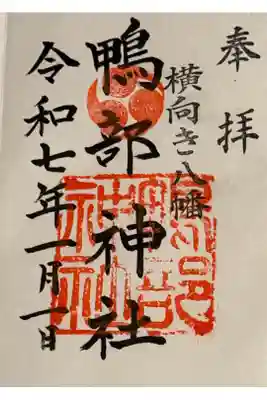 奉拝
横向き八幡
鴨部神社
令和七年一月一日